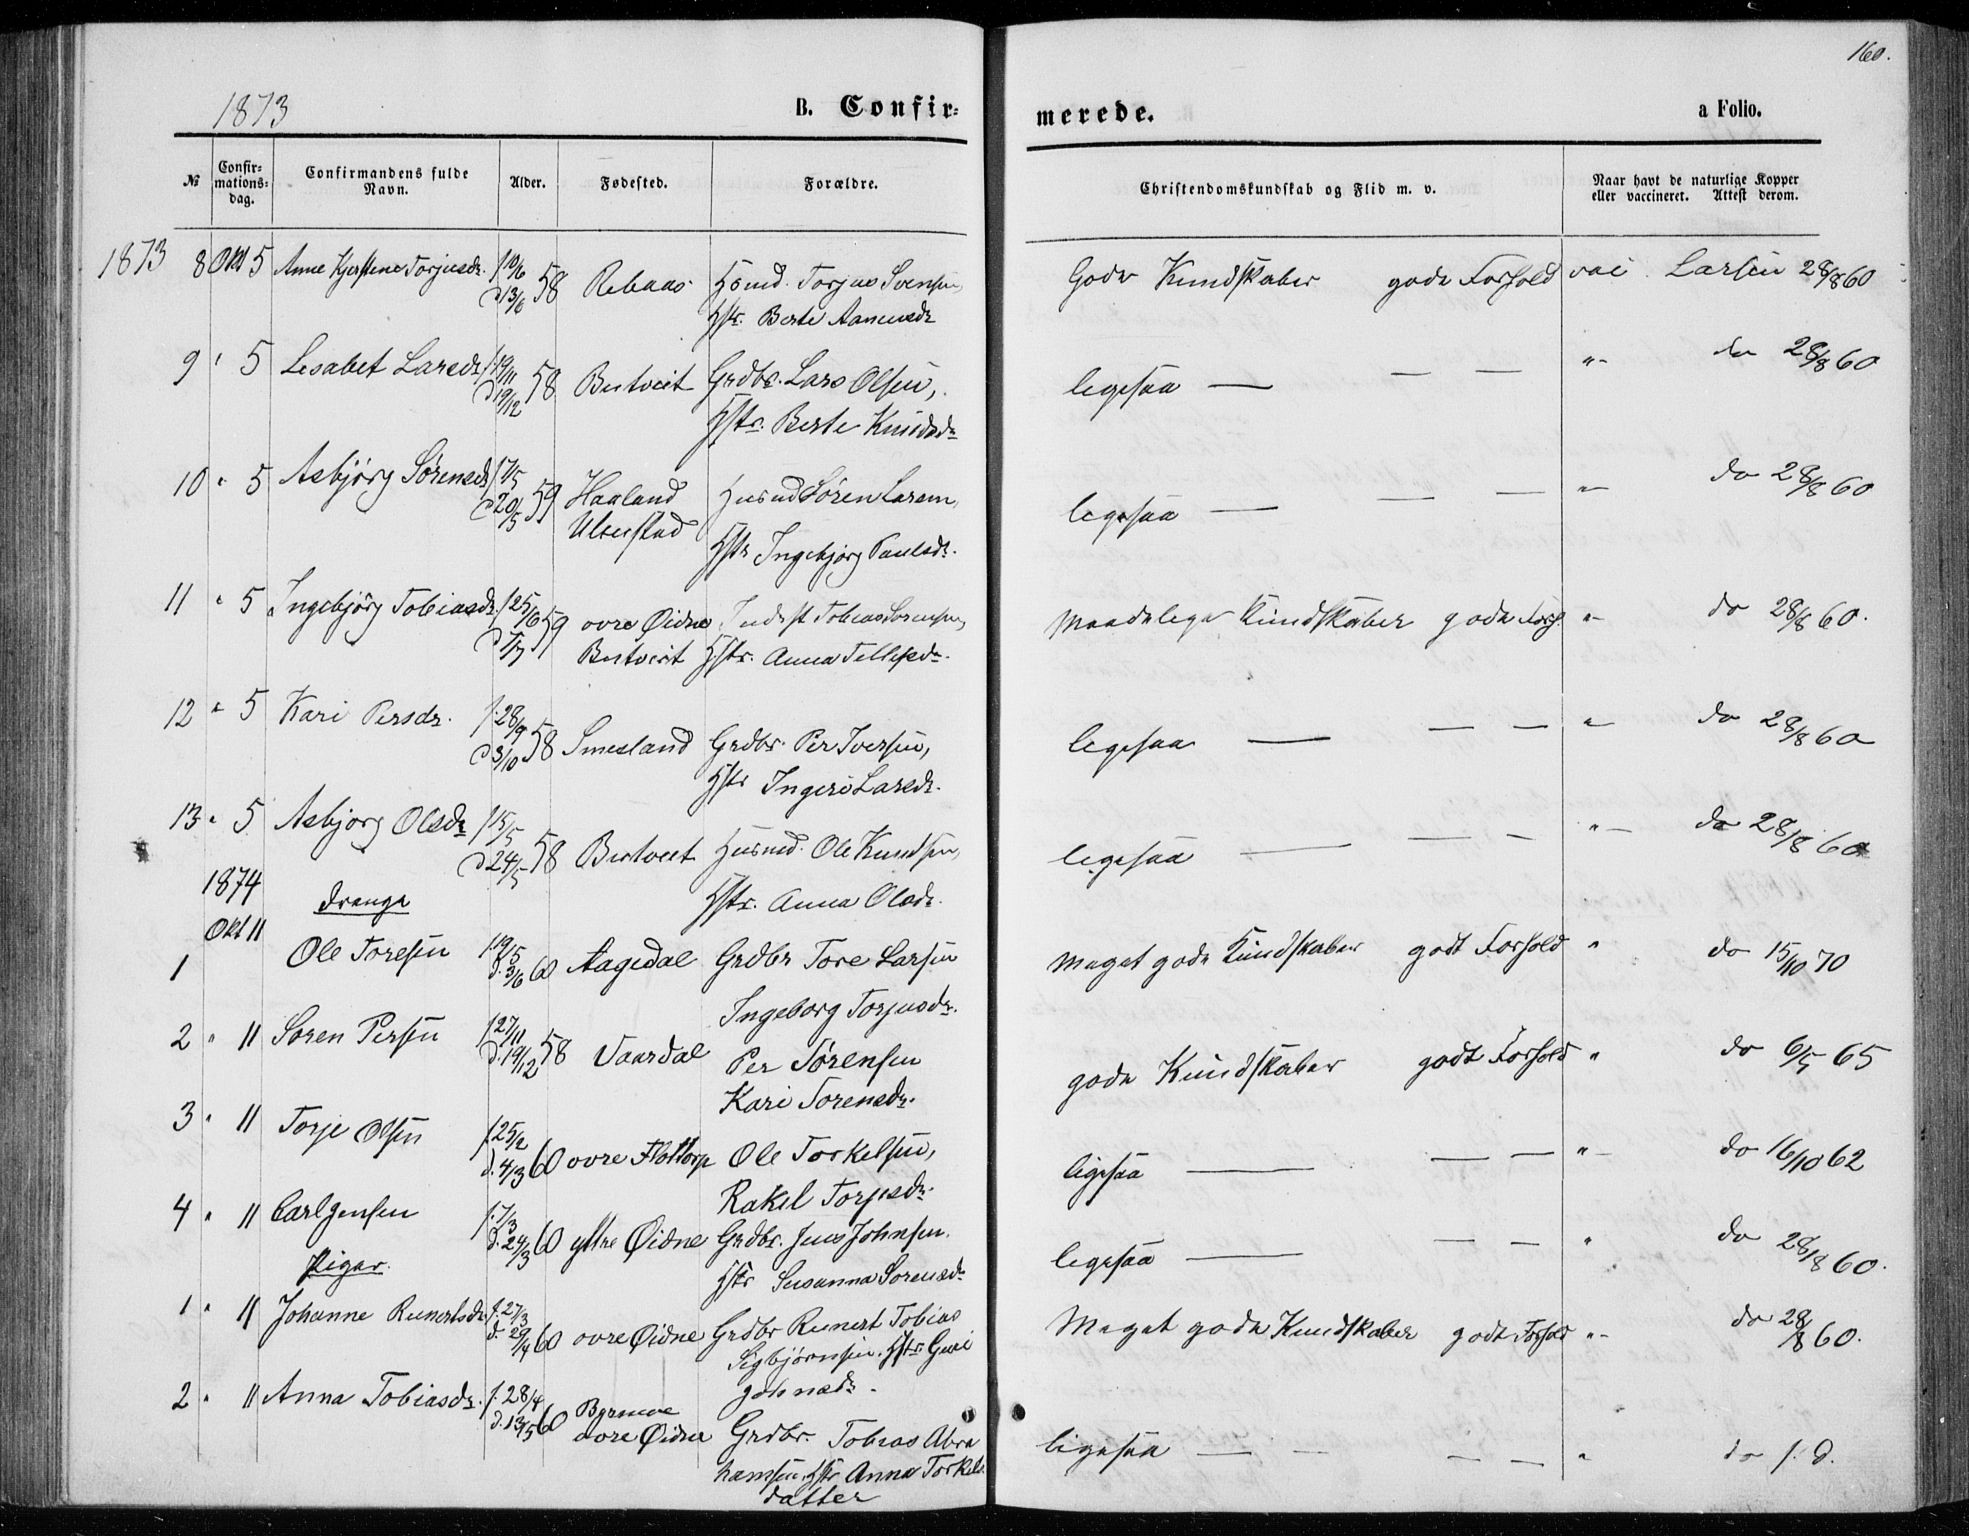 160.
1873
B. Confir=
merede.
a Folio.
№
Confir=
mations=
dag.
Confirmandens fulde
Navn.
Alder.
Fødested.
Forældre.
Christendomskundskab og Flid m. v.
Naar havt de naturlige Kopper
eller vaccineret. Attest derom.
1873 8 Okt 5 Anne Torjusdr. f 10/6 d 13/6 58 Rebaas Torjus Svensen, Gode Kundskaber gode Forhold vac. Larsen 28/8 60
Hstr. Berte Aanensdr
9 " 5 Lisabet Larsdr f. 19/11 d 19/12 58 Butveit Grdbr. Lars Olsen, ligesaa — — — "- do 28/8 60
Hstr. Berte Knudsdr
10 " 5 Asbjörg Sørensdr f 17/5 d 20/5 59 Haaland Husmd Sören Larsen, ligesaa — — — "- do 28/8 60
Ulsestad Hstr Ingebjörg Paulsdr.
11 " 5 Ingebjörg Tobiasdr. f 25/6 d 7/7 59 ovre Øidne Inderst Tobias Sorensen, Maadelige Kundskaber gode Forh. "- do 28/8 60.
Butveit Hstr. Anna Tellefsdr.
12 " 5 Kari Persdr. f. 28/9 d 3/10 58 Smesland Grdbr. Per Iversen, ligesaa — — — "- do 28/8 60
Hstr Ingeri Larsdr.
13 " 5 Asbjorg Olsdr f 15/5 d 24/5 58 Butveit Husmd. Ole Knudsen, ligesaa — — — "- do 28/8 60
Hstr. Anna Olsdr.
1874 Drenge
Okt 11
1 Ole Toresen f. 19/5 d. 3/6 60 Aagedal Grdbr Tore Larsen Meget gode Kundskaber godt Forhold " do 15/10 70
Ingeborg Torjusdr.
2 " 11 Soren Persen f 27/11 d. 19/12 58 Vaardal Per Sørensen gode Kundskaber godt Forhold " do 6/5 65
Kari Torensdr.
3 " 11 Torje Olsen f. 25/2 d. 4/3 60 ovre Flottorp Ole Torkelsen, ligesaa — — — "- do 16/10 62
Rakel Torjesdr.
4 " 11 Carl Jensen f. 7/3 d. 24/3 60 yttre Øidne Grdbr. Jens Johnsen. ligesaa — — — " do 28/8 60.
Piger. Hstr Susanna Sorensdr
1 " 11 Johanne Reinertsdr. f. 27/3 d. 29/4 60 ovre Øidne Grdbr Reinert Tobias Meget gode Kundskaber godt Forhold "- do 28/8 60.
Sigbjørnsen. Hstr Guri
Johnsdr.
2 " 11 Anna Tobiasdr. f. 28/4 d. 13/5 60 ovre Øidne Grdbr. Tobias Abra ligesaa — — — — " do f. d.
hamsen. Hstr Anna Torkels
datter